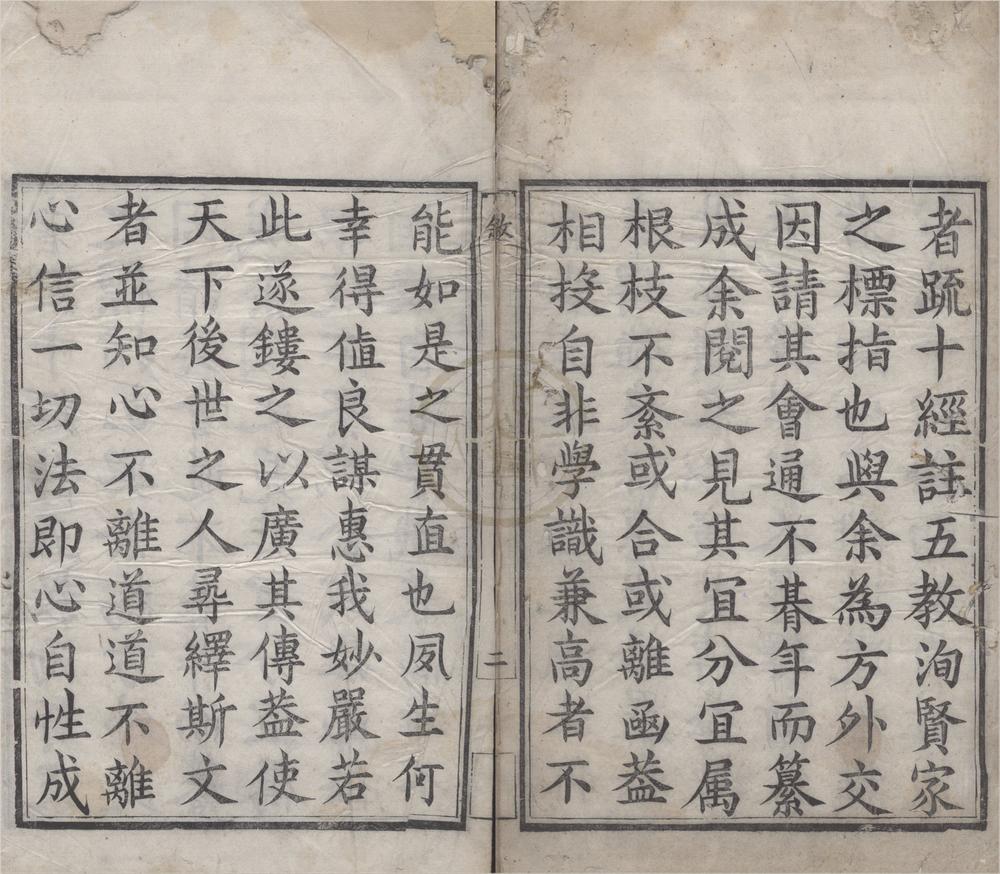 者䟽十經註五教洵賢家
之標指也與余為方外交
因請其會通不朞年而纂
成余閱之見其冝分冝属
根枝不紊或合或離函葢
相投自非學識兼高者不
敘
二
能如是之貫直也夙生何
幸得值良謀惠我妙嚴若
此遂鏤之以廣其傳葢使
天下後世之人尋繹斯文
者並知心不離道道不離
心信一切法即心自性成